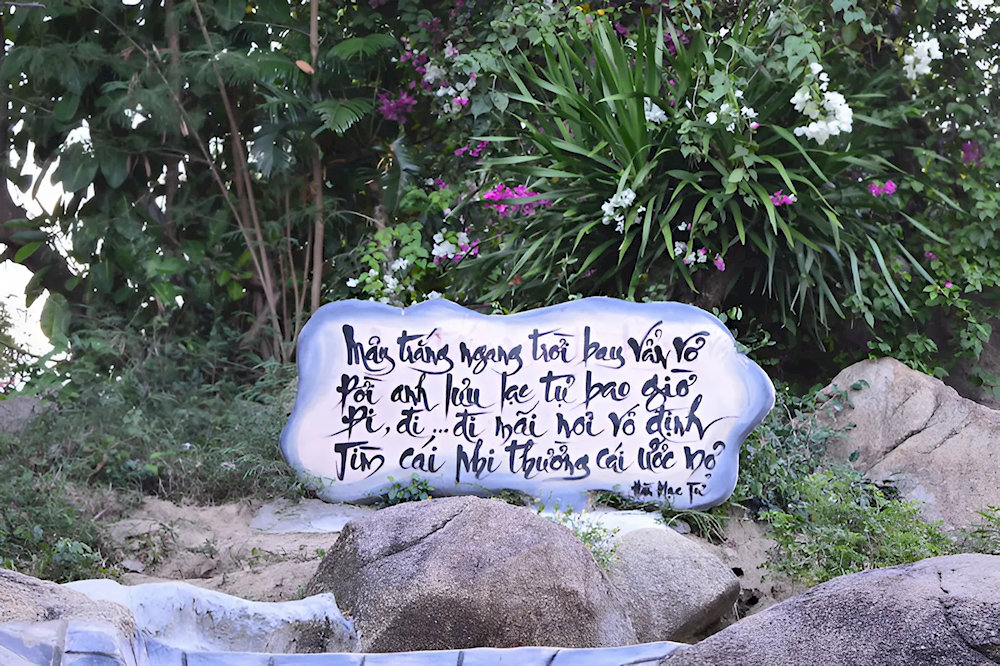 Mây trắng ngang trời bay vẩn vơ
Đời anh lưu lạc tự bao giờ
Đi, đi...đi mãi nơi vô định
Tìm cái phi thường cái ước mơ
Hàn Mạc Tử